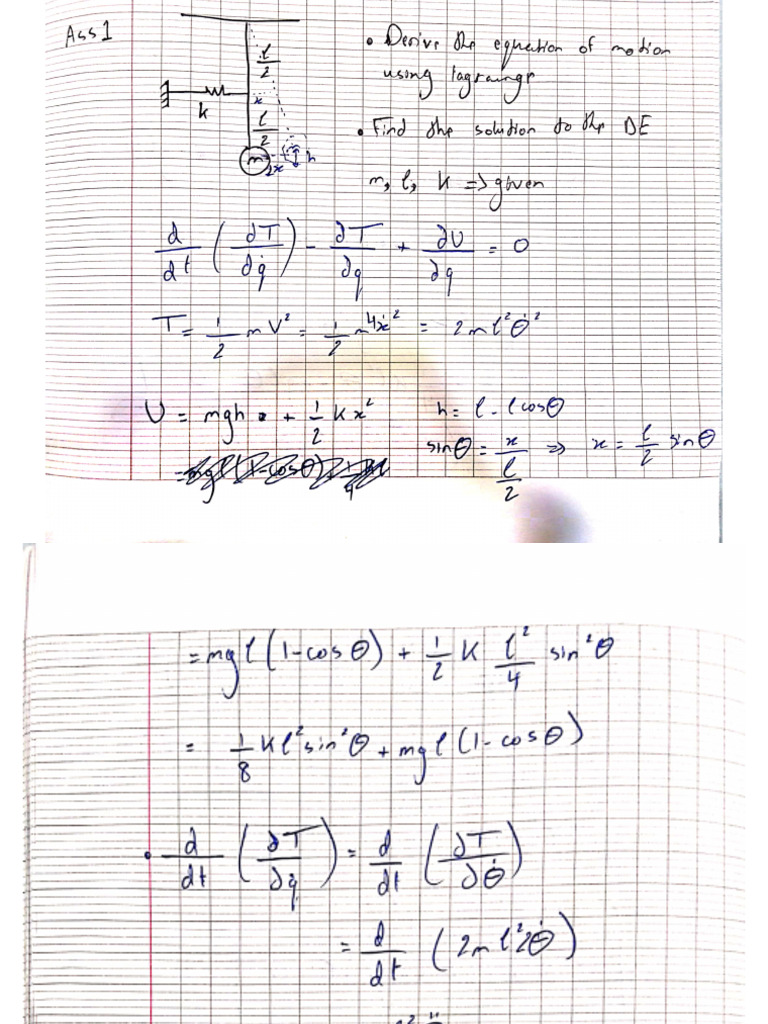 Ass 1
l/2
x
k
l/2
m
2x
h
• Derive the equation of motion
using lagraings
• Find the solution to the DE
m, l, K => given
d/dt (∂T/∂q̇) - ∂T/∂q + ∂U/∂q = 0
T = 1/2 m V² = 1/2 m 4ẋ² = 2 m l² θ̇²
U = mgh + 1/2 K x²
h = l - l cosθ
sinθ = x/(l/2) => x = l/2 sinθ
= mgl (1 - cosθ) + 1/2 K l²/4 sin²θ
= 1/8 K l² sin²θ + mgl (1 - cosθ)
• d/dt (∂T/∂q̇) = d/dt (∂T/∂θ̇)
= d/dt (2 m l² 2θ̇)